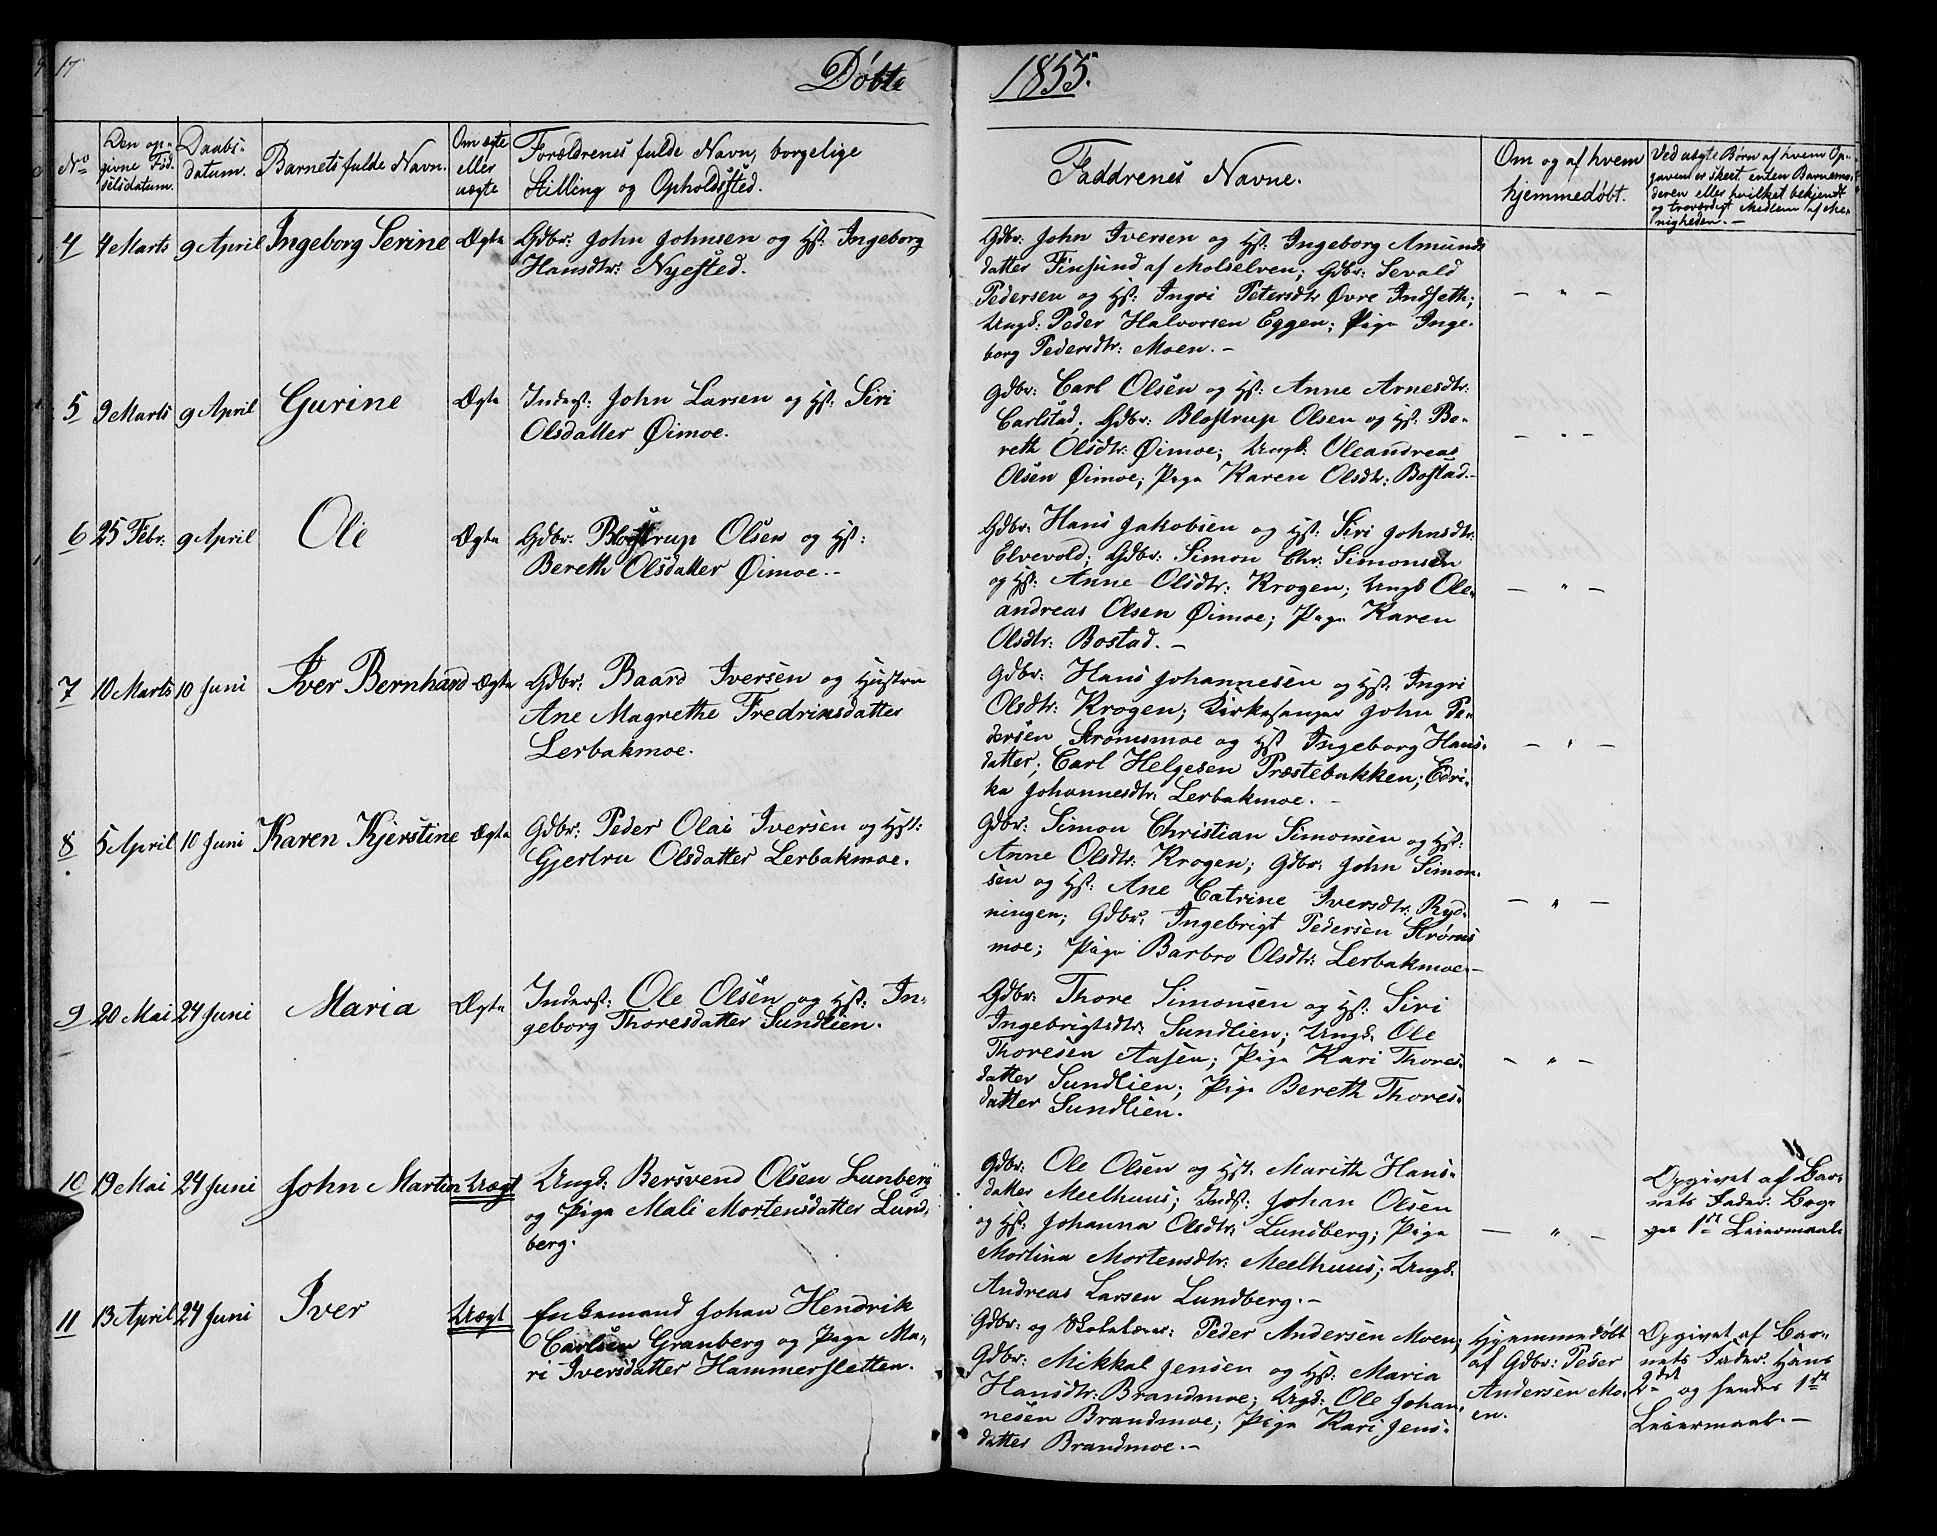 17
Døbte
1855.
No
Den op-
givne Fød-
selsdatum.
Daabs-
datum.
Barnets fulde Navn.
Om ægte
eller
uægte
Forældrenes fulde Navn, borgelige
Stilling og Opholdssted.
Faddrenes Navne.
Om og af hvem
hjemmedøbt.
Ved uægte Børn af hvem Op-
gaven er skeet, enten Barnemo-
deren eller hvilket bekjendt
og troværdigt Medlem af Me-
nigheden. -
4
4 Marts
9 April
Ingeborg Serine
Ægte
Gdbr: John Johnsen og Hst: Ingeborg
Hansdtr: Nyested.
Gdbr: John Iversen og Hst: Ingeborg Amunds
datter Finsund af Molselven; Gdbr: Sevald
Pedersen og Hst: Ingri Petersdtr Øvre Indseth;
Ungk: Peder Halvorsen Eggen; Pige Inge-
borg Pedersdtr: Moen. -
- " -
5
9 Marts
9 April
Gurine
Ægte
Inderst: John Larsen og Hst: Siri
Olsdatter Øimoe.
Gdbr: Carl Olsen og Hst: Anne Arnesdtr:
Carlstad; Gdbr: Blostrup Olsen og Hst: Be-
reth Olsdtr: Øimoe; Ungk: Oleandreas
Olsen Øimoe; Pige Karen Olsdtr: Bostad. -
- " -
6
25 Febr:
9 April
Ole
Ægte
Gdbr: Blostrup Olsen og Hst:
Bereth Olsdatter Øimoe. -
Gdbr: Hans Jakobsen og Hst: Siri Johnsdtr:
Elvevold; Gdbr: Simon Chr: Simonsen
og Hst: Anne Olsdtr: Krogen; Ungk Ole-
andreas Olsen Øimoe; Pige Karen
Olsdtr: Bostad. -
- " -
7
10 Marts
10 Juni
Iver Bernhard
Ægte
Gdbr: Baard Iversen og Hustru
Ane Magrethe Fredriksdatter
Lerbakmoe.
Gdbr: Hans Johannesen og Hst: Ingri
Olsdtr: Krogen; Kirkesanger John Pe-
dersen Strømsmoe og Hst Ingeborg Hans-
datter; Carl Helgesen Præstebakken; Edri-
ka Johannesdtr: Lerbakmoe. -
- " -
8
5 April
10 Juni
Karen Kjerstine
Ægte
Gdbr: Peder Olai Iversen og Hst:
Gjertru Olsdatter Lerbakmoe.
Gdbr: Simon Christian Simonsen og Hst:
Anne Olsdtr: Krogen; Gdbr: John Simon-
sen og Hst: Ane Catrine Iversdtr: Ryd-
ningen; Gdbr: Ingebrigt Pedersen Strøms
moe; Pige Barbro Olsdtr: Lerbakmoe. -
- " -
9
20 Mai
24 Juni
Maria
Ægte
Inderst: Ole Olsen og Hst: In-
geborg Thoresdatter Sundlien.
Gdbr: Thore Simonsen og Hst: Siri
Ingebrigtsdtr: Sundlien; Ungk. Ole
Thoresen Aasen; Pige Kari Thores-
datter Sundlien; Pige Bereth Thores-
datter Sundlien.
- " -
10
19 Mai
24 Juni
John Martin
Uægt
Ungk: Bersvend Olsen Lunberg
og Pige Mali Mortensdatter Lund-
berg.
Gdbr: Ole Olsen og Hst. Marith Hans-
datter Meelhuus; Indst: Johan Olsen
og Hst: Johanna Olsdtr: Lundberg; Pige
Martina Mortensdtr: Meelhuus; Ungk:
Andreas Larsen Lundberg. -
- " -
Opgivet af Bar-
nets Fader. Beg-
ges 1ste Leiermaal.
11
13 April
24 Juni
Iver
Uægt
Enkemand Johan Hendrik
Carlsen Granberg og Pige Ma-
ri Iversdatter Hammersletten.
Gdbr: og Skolelærer: Peder Andersen Moen;
Gdbr: Mikkal Jensen og Hst: Maria
Hansdtr: Brandmoe; Ungk: Ole Johan-
nesen Brandmoe; Pige Kari Jens-
datter Brandmoe. -
Hjemmedøbt
af Gdbr: Peder
Andersen Mo-
en.
Opgivet af Bar-
nets Fader. Hans
2det og hendes 1ste
Leiermaal. -